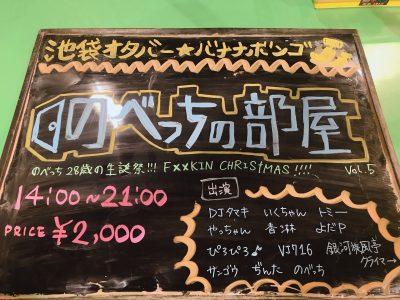 池袋オタバー★バナナボンゴ
のべっちの部屋
のべっち28歳の生誕祭!!! FXXKIN CHRISTMAS!!!! Vol.5
14:00～21:00
PRICE ¥2,000
出演
DJタマキ いくちゃん トミー
やっちゃん 杏林 よだP
ぴろぴろ♪ VJ716 銀河旋風亭クライマー→
サンゴウ ぢんた のべっち